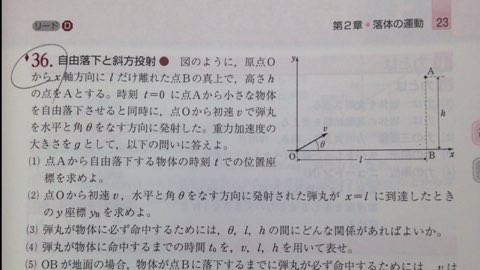 リード D
第2章・落体の運動 23
36. 自由落下と斜方投射● 図のように，原点O
からx軸方向に l だけ離れた点Bの真上で，高さh
の点をAとする。時刻 t=0 に点Aから小さな物体
を自由落下させると同時に，点Oから初速 v で弾丸
を水平と角 θ をなす方向に発射した。重力加速度の
大きさを g として，以下の問いに答えよ。
y
A
h
v
θ
O
l
B
x
(1) 点Aから自由落下する物体の時刻 t での位置座
標を求めよ。
(2) 点Oから初速 v，水平と角 θ をなす方向に発射された弾丸が x=l に到達したとき
の y 座標 yB を求めよ。
(3) 弾丸が物体に必ず命中するためには，θ, l, h の間にどんな関係があればよいか。
(4) 弾丸が物体に命中するまでの時間 t₀ を，v, l, h を用いて表せ。
(5) OBが地面の場合，物体が点Bに落下するまでに弾丸が物体に命中するためには，v は